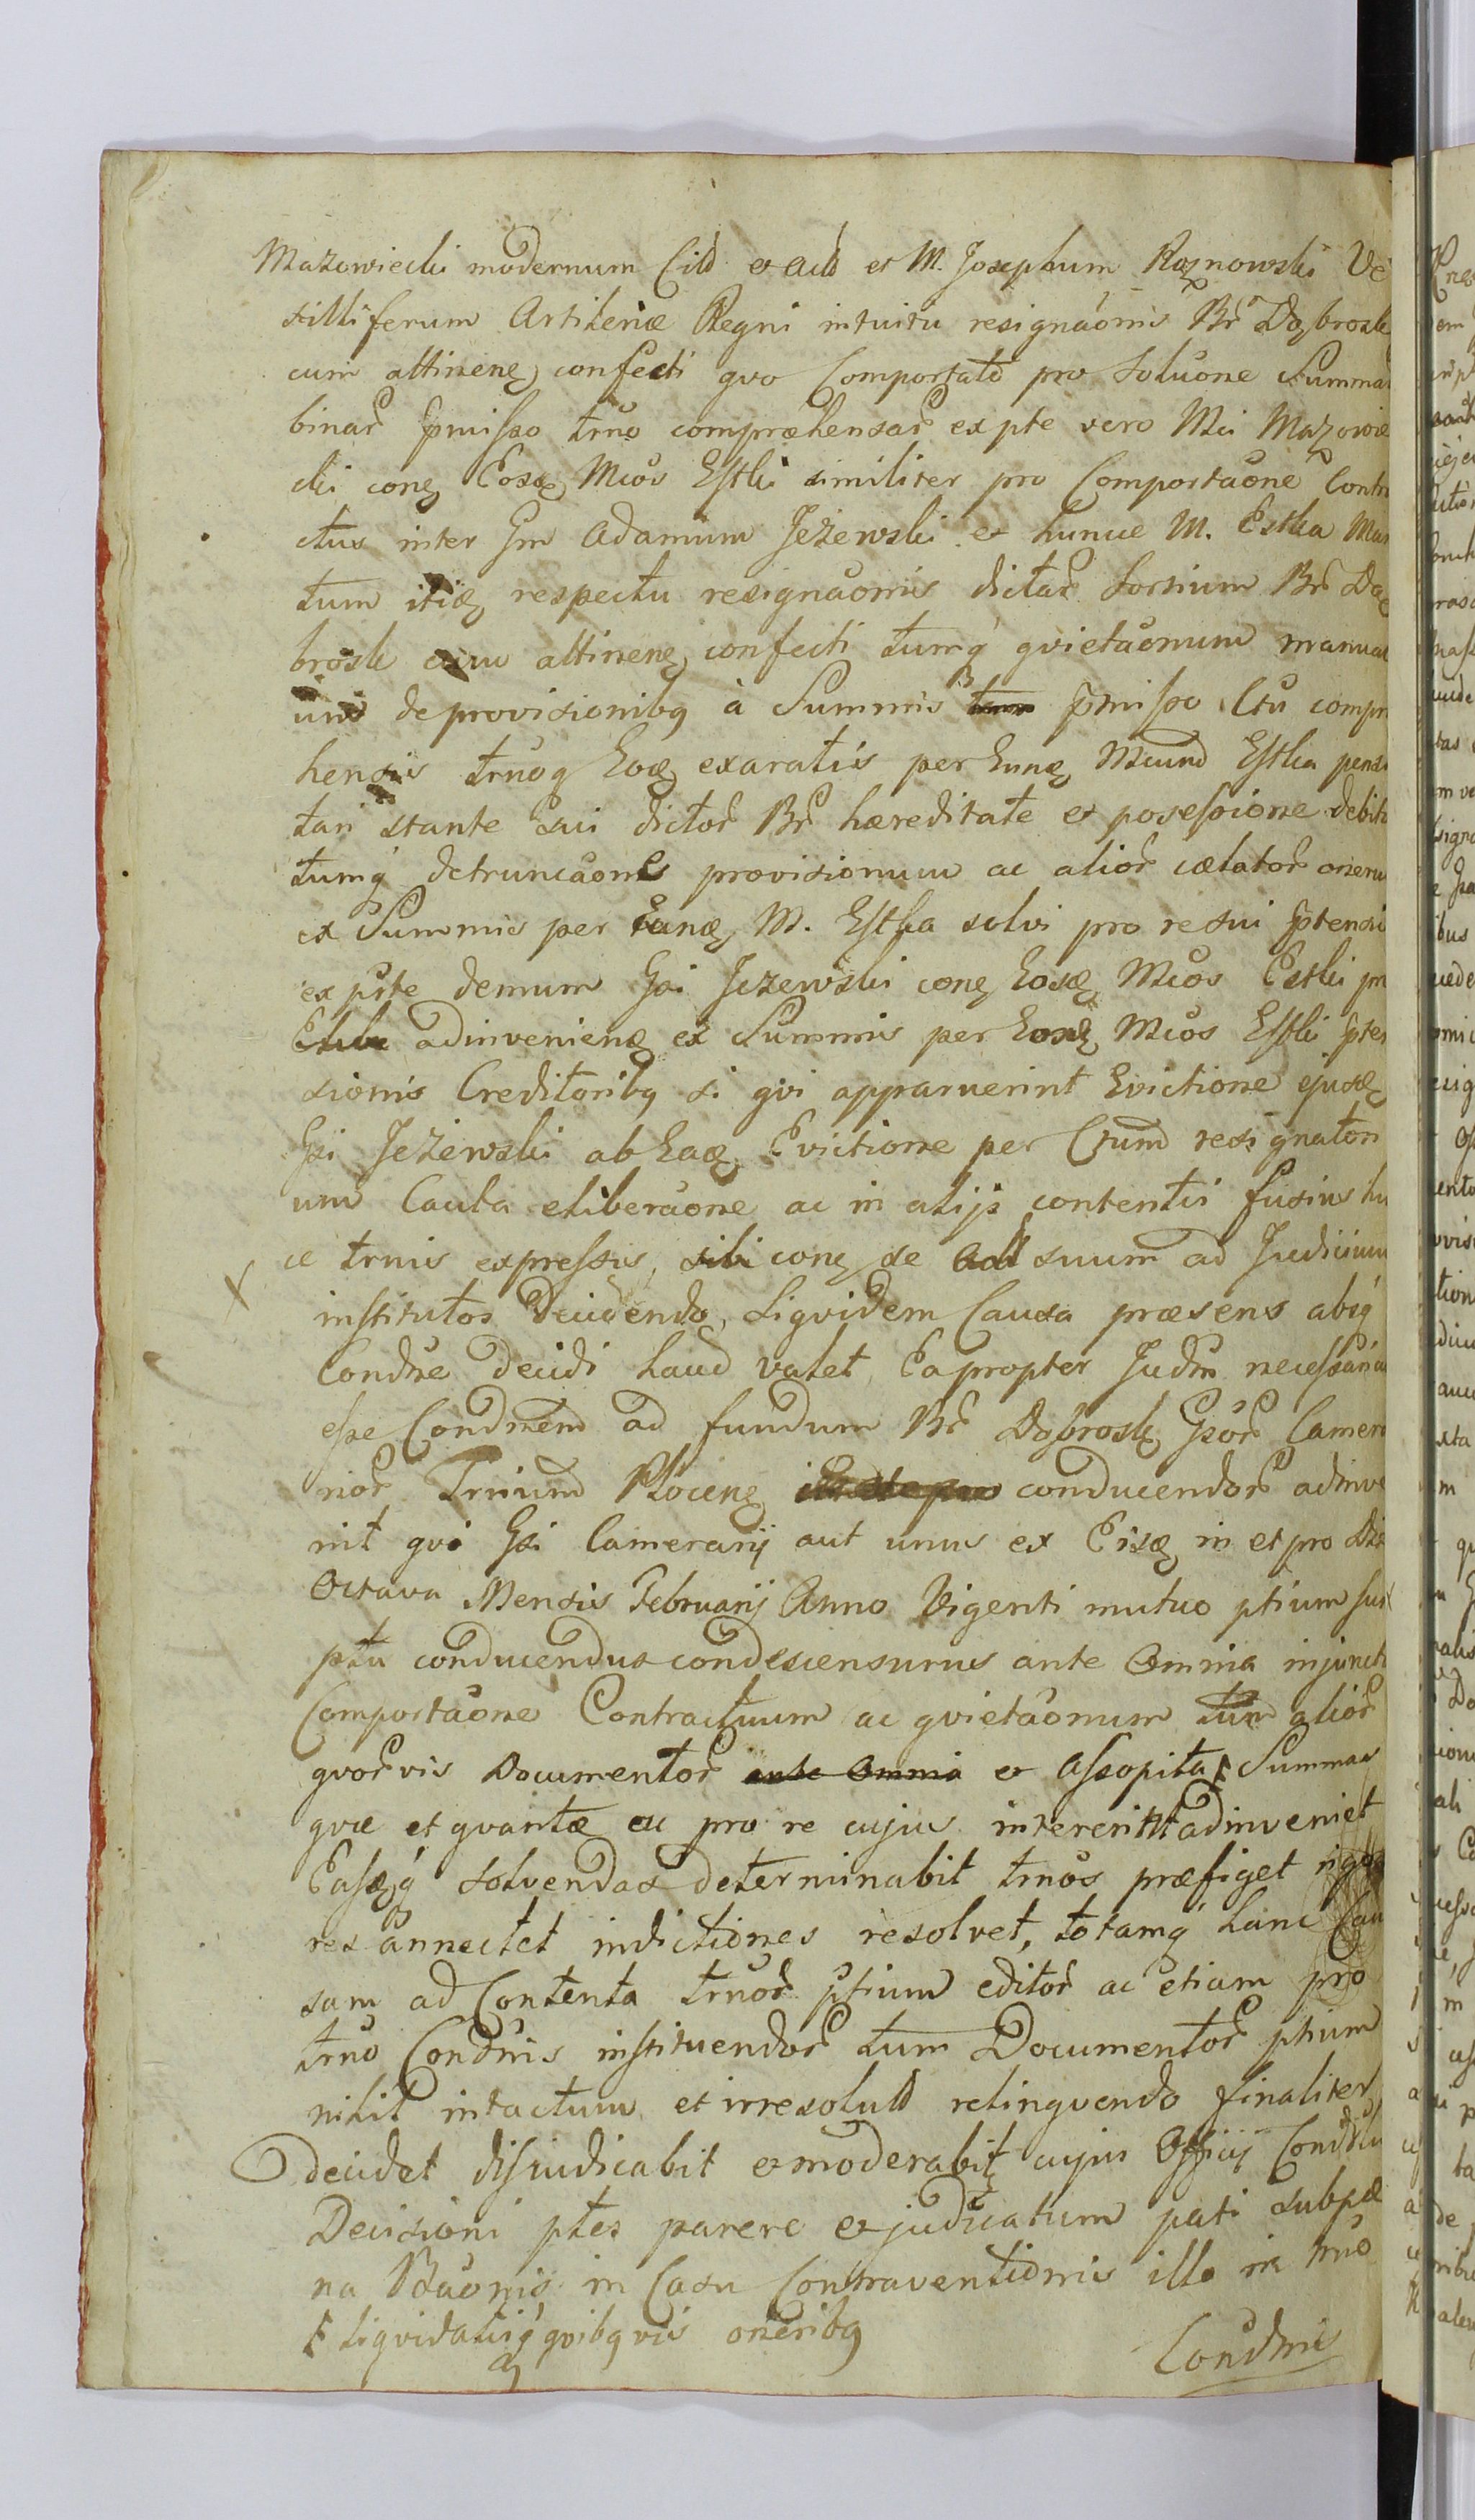 Mazowiecki modernum Citt et actt et M. Josephum Roznowski Ve
xilliferum Artileriæ Regni intuitu resignãonis Br̃ Dobrosk
cum attinenq confecti qvo Comportato pro Soluõne Summar
binar p̃misso trño compræhensar ex pte vero Mci Mazowie
cki conq Eosq Mcos Estki similiter pro Comportaõne Contra
ctus inter Gm Adamum Jeżewski et hunce M. Estka
tum itiq respectu resignaõnis dictar Sortium Br̃ Do
brosk cum attinenq confecti tumq́ qvietaõnum manua
de provisionibq à Summis p̃misso Ctu compre
hensis trñoq Eoq exaratis per Eunq Mcum Estka
tari stante sui dictor Br̃ hæreditate et possessione debit
tumq́ detruncaõne provisionum ac alior cælator onerum
ex Summis per Eunq M. Estka solvi pro re sui
ex pte demum Gsi Jeżewski conq Eosq Mcos Estki
adinvenienq ex Summis per Eosq Mcos Estki
sionis Creditoribq si qvi apparuerint Evictione ejusq
Gsi Jeżewski ab Eaq Evictione per Ctum resignatori
um Causa eliberaõne ac in alijs contentis fusius hu
ce trnis expressis, sibi conq se actt suum ad Judicium
institutos decidendo, Siqvidem Causa præsens absq́
Condne decidi haud valet, Eapropter Judm necessariam
esse Condnem ad fundum Br̃ Dobrosk Gsor Camera
rior Trrium Plocenq conducendor adinve
nit qvi Gsi Camerarij aut unus ex Eisq in et pro Die
Octava Mensis Februarij Anno Vigenti mutuo ptium sum
ptu conducendus condescensurus ante Omnia injuncta
Comportaõne Contractuum ac qvietaõnum tum alior
qvorvis Documentor ante omnia et assopita Summas
qvæ et qvantæ ac pro re cujus intererint adinveniet
Easqq́ solvendas determinabit trnos præfiget rigo
res annectet indictiones resolvet, totamq́ hanc Cau
sam ad Contenta trnor ptium editor ac etiam pro
trno Condnis instituendor tum Documentor ptium
nihil intactum et irresolutt relinqvendo finaliter
decidet disiudicabit et moderabit cujus Officij Condlis
Decisioni ptes parere et judicatum pati sub pæ
na Banonis in Casu Contraventionis illo in trno
liqvidatisq́ qvibqvis oneribq
Condnis